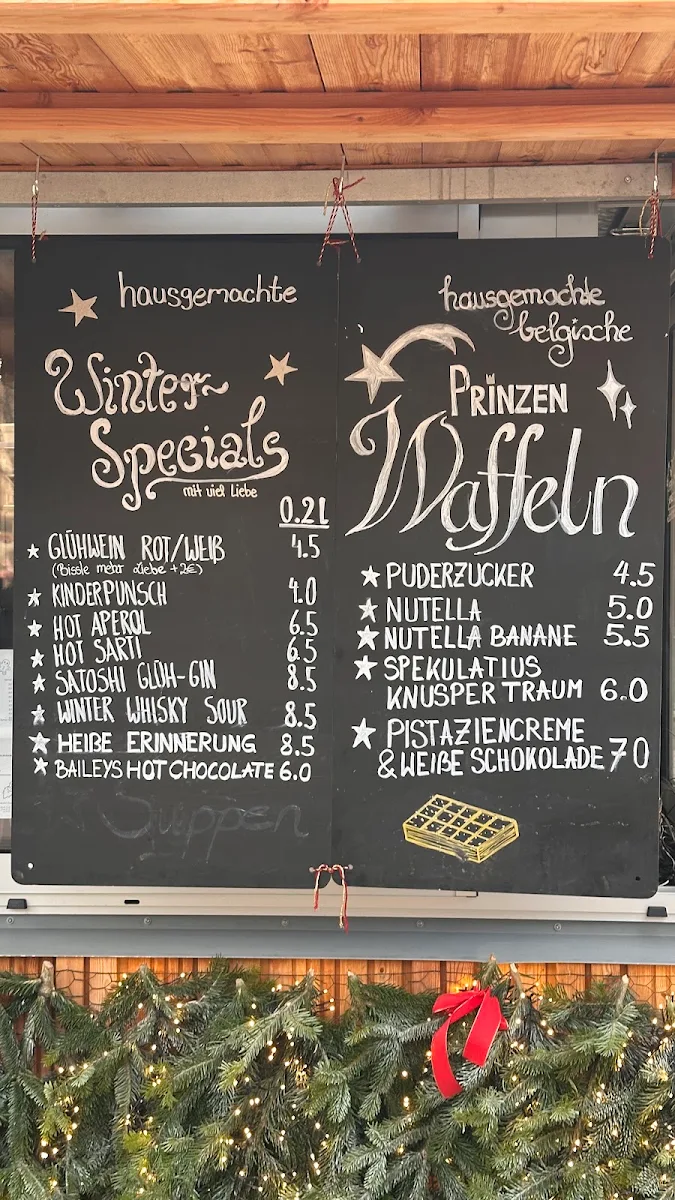 hausgemachte
Winter-
Specials
mit viel Liebe
0.2l
GLÜHWEIN ROT/WEIß 4.5
(Bissle mehr Liebe +2€)
KINDERPUNSCH 4.0
HOT APEROL 6.5
HOT SARTI 6.5
SATOSHI GLÜH-GIN 8.5
WINTER WHISKY SOUR 8.5
HEIßE ERINNERUNG 8.5
BAILEYS HOT CHOCOLATE 6.0
Suppen
hausgemachte
belgische
PRINZEN
Waffeln
PUDERZUCKER 4.5
NUTELLA 5.0
NUTELLA BANANE 5.5
SPEKULATIUS
KNUSPER TRAUM 6.0
PISTAZIENCREME
& WEIßE SCHOKOLADE 70